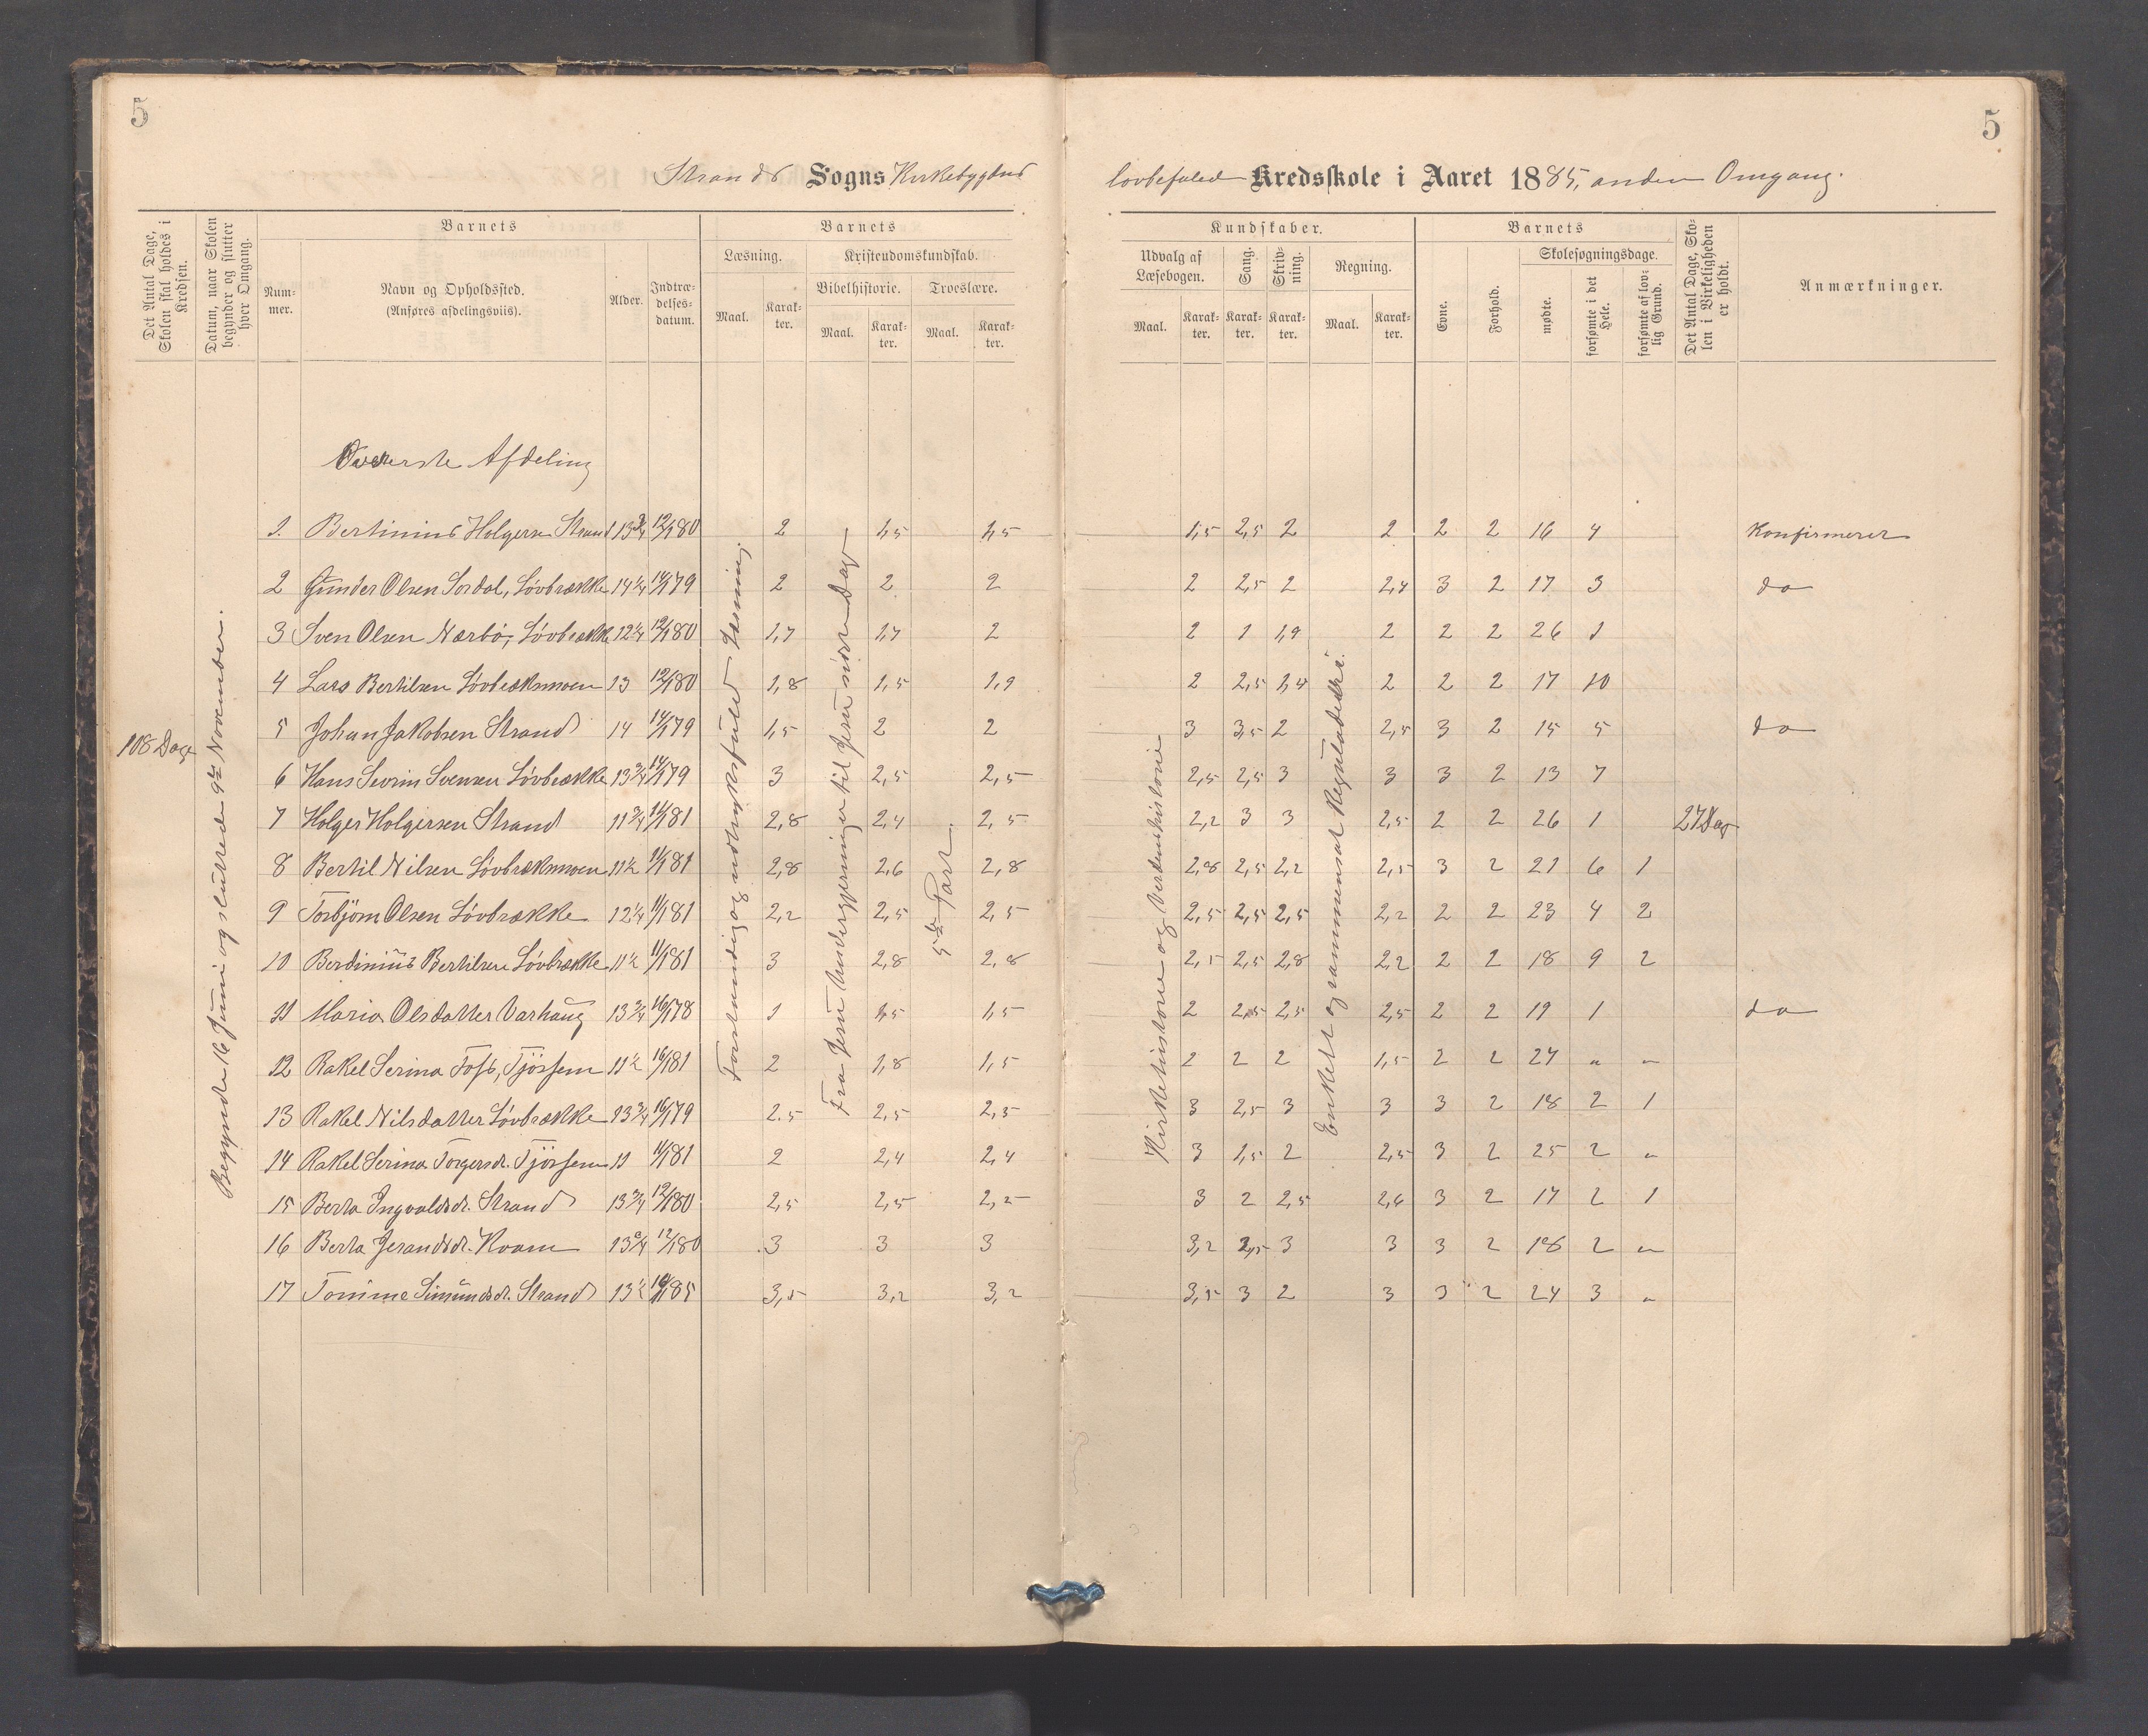 5
5
Strands Sogns Kirkebygdens
lovbefalede Kredsskole i Aaret 1885, anden Omgang.
Det Antal Dage, Skolen skal holdes i Kredsen.
Datum, naar Skolen begynder og slutter hver Omgang.
Barnets
Num-mer.
Navn og Opholdssted.
(Anføres afdelingsviis).
Alder.
Indtræ-delses-datum.
Barnets
Læsning.
Kristendomskundskab.
Bibelhistorie.
Troeslære.
Maal. Karak-ter. Maal. Karak-ter. Maal. Karak-ter.
Kundskaber.
Udvalg af Læsebogen.
Sang.
Skriv-ning.
Regning.
Maal. Karak-ter. Karak-ter. Karak-ter. Maal. Karak-ter.
Barnets
Evne.
Forhold.
Skolesøgningsdage.
mødte.
forsømte i det Hele.
forsømte af lov-lig Grund.
Det Antal Dage, Sko-len i Virkeligheden er holdt.
Anmærkninger.
108 Dage
Begyndte 16 Juni og sluttede 9de November.
Øverste Afdeling
Forstandig og udtryksfuld Læsning.
Fra Jesu Undergjerninger til Jesu sidste Dage
5te Part
Kirkehistorie og Verdenshistorie
Enkelt og sammensat Regulade
27 Dage
1. Bertinius Holgersen Strand 13 3/4 12/1 80 2 1,5 1,5 1,5 2,5 2 2 2 2 16 4 Konfirmeret
2 Gunder Olsen Sordal, Løvbrække 14 1/4 14/1 79 2 2 2 2 2,5 2 2,4 3 2 17 3 do
3 Sven Olsen Nærbø, Løvbrække 12 1/4 12/1 80 1,7 1,7 2 2 1 1,9 2 2 2 26 1
4 Lars Bertilsen Løvbrækmoen 13 12/1 80 1,8 1,5 1,9 2 2,5 1,4 2 2 2 17 10
5 Johan Jakobsen Strand 14 14/1 79 1,5 2 2 3 3,5 2 2,5 3 2 15 5 do
6 Hans Sevrin Svensen Løvbrække 13 3/4 14/1 79 3 2,5 2,5 2,5 2,5 3 3 3 2 13 7
7 Holger Holgersen Strand 11 3/4 14/1 81 2,8 2,4 2,5 2,2 3 3 2,5 2 2 26 1
8 Bertil Nilsen Løvbrækmoen 11 1/2 11/1 81 2,8 2,6 2,8 2,8 2,5 2,2 2,5 3 2 21 6 1
9 Torbjørn Olsen Løvbrække 12 1/4 11/1 81 2,2 2,5 2,5 2,5 2,5 2,5 2,2 2 2 23 4 2
10 Berdinius Bertilsen Løvbrække 11 1/2 11/1 81 3 2,8 2,8 2,5 2,5 2,8 2,2 2 2 18 9 2
11 Maria Olsdatter Varhaug 13 3/4 16/1 78 1 1,5 1,5 2 2,5 2,5 2,5 2 2 19 1 do
12 Rakel Serina Fos, Tjøssem 11 1/2 16/1 81 2 1,8 1,5 2 2 2 1,5 2 2 27 " "
13 Rakel Nilsdatter Løvbrække 13 3/4 16/1 79 2.5 2,5 2,5 3 2,5 3 3 3 2 18 2 1
14 Rakel Serina Torgersdr. Tjøssem 11 11/1 81 2 2,4 2,4 3 1,5 2 2,5 3 2 25 2 "
15 Berta Ingvaldsdr. Strand 13 3/4 12/1 80 2,5 2,5 2,2 3 2 2,5 2,6 3 2 17 2 1
16 Berta Jerandsdr. Kvam 13 3/4 12/1 80 3 3 3 3,2 2,5 3 3 3 2 18 2 "
17 Tomine Simundsdr. Strand 13 1/2 85 3,5 3,2 3,2 3,5 3 2 3 3 2 24 3 "